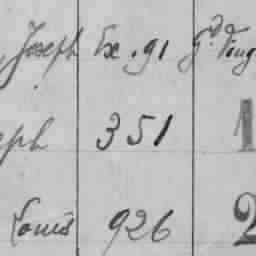 Joseph Ex. 91 Gd
eph 351 1
Louis 926 2